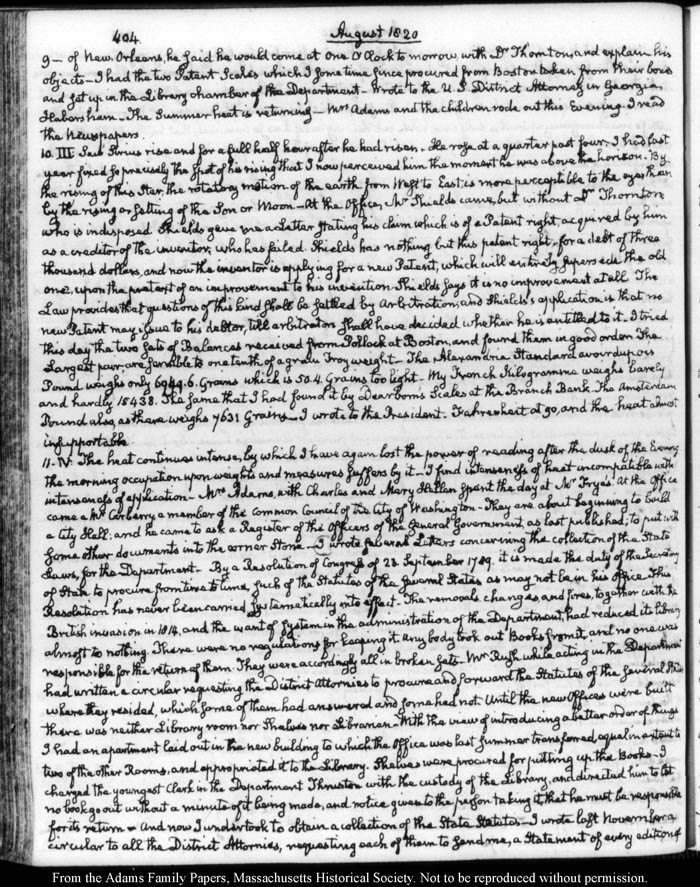 404
August 1820
9— of New Orleans, he said he would come at One O'Clock to morrow, with Dr Thornton, and explain his
objects— I had the two Patent Scales which I some time since procured from Boston taken from their boxes
and set up in the Library chamber of the Department. Wrote to the U.S. District Attorney in Georgia,
Habersham. The Summer heat is returning— Mrs Adams and the children rode out this Evening. I read
the Newspapers.
10. III. Saw Sirius rise and for a full half hour after he had risen. He rose at a quarter past four. I had last
year fixed so precisely the spot of his rising that I now perceived him the moment he was above the horizon. By
the rising of this Star, the rotatory motion of the earth from West to East is more perceptible to the eyes than
by the rising or setting of the Sun or Moon— At the Office, Mr Shields came, but without Dr Thornton
who is indisposed. Shields gave me a Letter stating his claim which is of a Patent right, acquired by him
as a creditor of the inventor, who has failed. Shields has nothing but this patent right, for a debt of three
thousand dollars, and now the inventor is applying for a new Patent, which will entirely supersede the old
one, upon the pretext of an improvement to his invention. Shields says it is no improvement at all. The
Law provides that questions of this kind shall be settled by Arbitration, and Shields's application is that no
new Patent may issue to his debtor, till arbitrators shall have decided whether he is entitled to it. I tried
this day the two sets of Balances received from Pollock at Boston, and found them in good order. The
Largest pair, are sensible to one tenth of a grain Troy weight— The Alexandria Standard avoirdupois
Pound weighs only 6949.6. Grains which is 50.4. Grains too light— My French Kilogramme weighs barely
and hardly 15438. The same that I had found it by Dearborn's Scales at the Branch Bank. The Amsterdam
Pound also, as there weighs 7631 Grains— I wrote to the President. Fahrenheit at 90, and the heat almost
insupportable.
11. IV. The heat continues intense, by which I have again lost the power of reading after the dusk of the Evening
the morning occupation upon weights and measures suffers by it— I find intenseness of heat incompatible with
intenseness of application— Mrs Adams, with Charles and Mary Hellen spent the day at Mr Frye's. At the Office
came a Mr Carberry a member of the Common Council of the City of Washington— They are about beginning to build
a City Hall; and he came to ask a Register of the Officers of the General Government, as last published; to put with
some other documents into the corner Stone— I wrote several Letters concerning the collection of the State
Laws, for the Department— By a Resolution of Congress of 23 September 1789. it is made the duty of the Secretary
of State to procure from time to time, such of the Statutes of the several States as may not be in his Office. This
Resolution has never been carried systematically into effect— The removals, changes, and fires, together with the
British invasion in 1814, and the want of system in the administration of the Department, had reduced its Library
almost to nothing. There were no regulations for keeping it. Any body took out Books from it, and no one was
responsible for the return of them. They were accordingly all in broken sets— Mr Rush while acting in the Department
had written a circular requesting the District Attornies to procure and forward the Statutes of the several States
where they resided, which some of them had answered and some had not. Until the new Offices were built
there was neither Library room nor Shelves nor Librarian— With the view of introducing a better order of things
I had an apartment laid out in the new building to which the Office was last Summer transferred, equal in extent to
two of the other Rooms, and appropriated it to the Library. Shelves were procured for putting up the Books— I
charged the youngest Clerk in the Department Thruston with the custody of the Library, and directed him to let
no book go out without a minute of it being made, and notice given to the person taking it, that he must be responsible
for its return— And now I undertook to obtain a collection of the State Statutes— I wrote last November a
circular to all the District Attornies, requesting each of them to send me, a Statement of every edition of
From the Adams Family Papers, Massachusetts Historical Society. Not to be reproduced without permission.